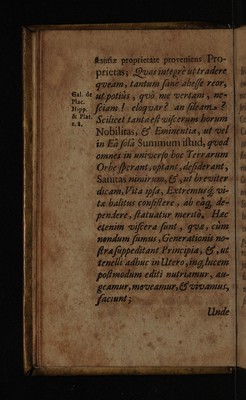 stantiæ proprietate proveniens Pro-
prietas; Quas integrè ut tradere
qveam, tantum sane abesse reor,
ut potiùs, qvò me vertam, ne-
sciam! eloqvar? an sileam?
Scilicet tanta est viscerum horum
Nobilitas, & Eminentia, ut vel
in Eâ solâ Summum istud, qvod
omnes in universo hoc Terrarum
Orbe sperant, optant, desiderant,
Sanitas nimirum, &, ut breviter
dicam, Vita ipsa, Extremusq; vi-
tæ halitus consistere, ab eâq; de-
pendere, statuatur meritò. Hæc
etenim viscera sunt, qvæ, cùm
nondum sumus, Generationis no-
stræ suppeditant Principia, &, ut
tenelli adhuc in Utero, inq; lucem
postmodum editi nutriamur, au-
geamur, moveamur, & vivamus,
faciunt;
Unde
Gal. de
Plac.
Hipp.
& Plat.